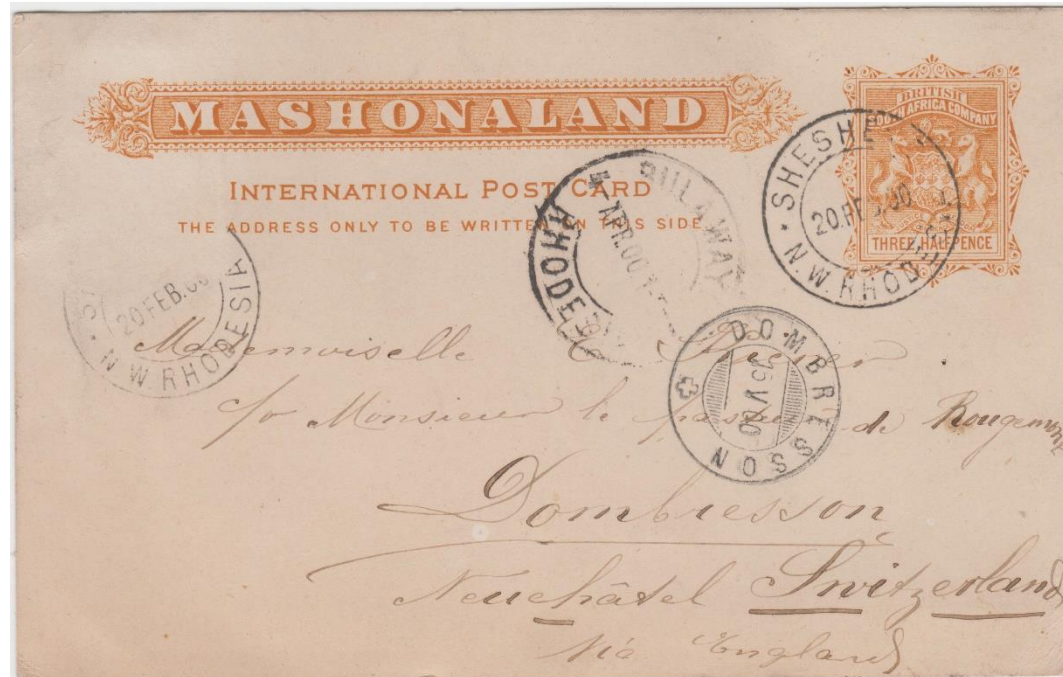 MASHONALAND
INTERNATIONAL POST CARD
THE ADDRESS ONLY TO BE WRITTEN ON THIS SIDE
BRITISH
SOUTH AFRICA COMPANY
THREE HALFPENCE
SHESHE
20. FEB. 00
N.W. RHOD
BULAWAY
APR. 00
RHODE
20 FEB. 00
N W RHODESIA
DOMBRESSON
V 00
Mademoiselle
c/o Monsieur le pasteur de Rougemont
Dombresson
Neuchâtel Switzerland
Via England